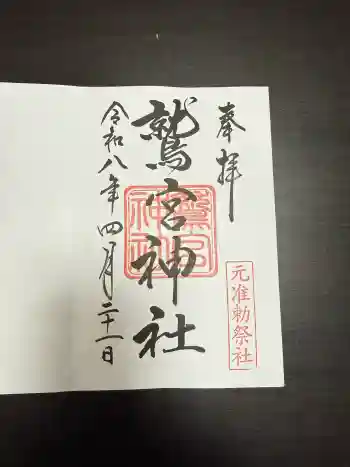 奉拝
元准勅祭社
鷲宮神社
令和八年四月二十一日